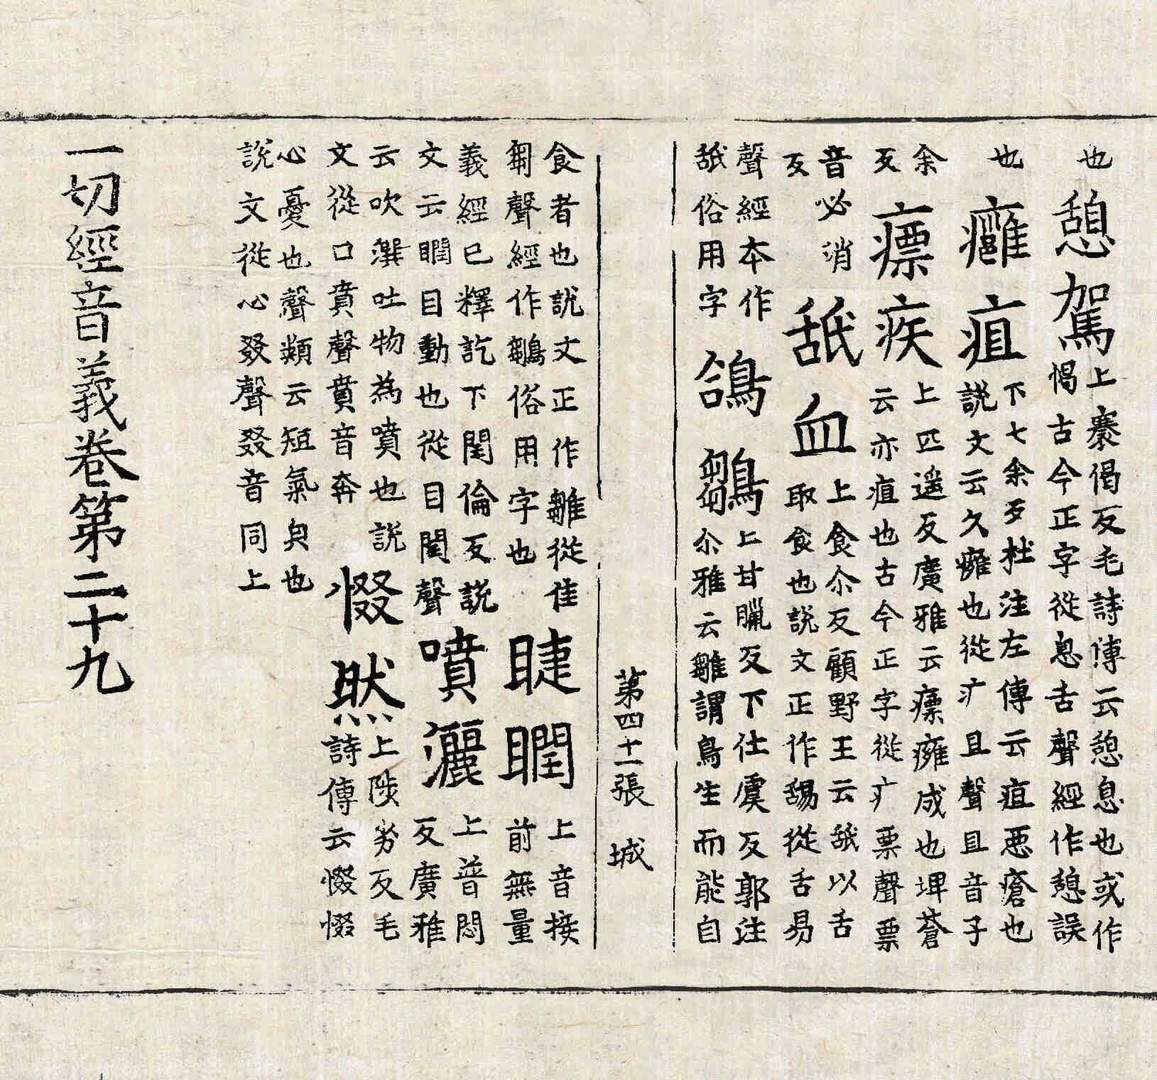 也憩駕上褰偈反毛詩傳云憩息也或作
愒古今正字從息舌聲經作憩誤
也癰疽下七余反杜注左傳云疽惡瘡也
說文云久癰也從疒且聲且音子
余
反瘭疾上匹遥反廣雅云瘭癰成也埤蒼
云亦疽也古今正字從疒票聲票
音必消
反舐血上食尒反顧野王云舐以舌
取食也說文正作舓從舌易
聲經本作
舐俗用字鴿鶵上甘臘反下仕虞反郭注
尒雅云雛謂鳥生而能自
第四十一張 城
食者也說文正作雛從隹
芻聲經作鶵俗用字也睫瞤上音接
前無量
義經已釋訖下閏倫反說
文云瞤目動也從目閏聲噴灑上普悶
反廣雅
云吹潠吐物為噴也說
文從口賁聲賁音奔惙然上陟劣反毛
詩傳云惙惙
心憂也聲類云短氣皃也
說文從心叕聲叕音同上
一切經音義卷第二十九